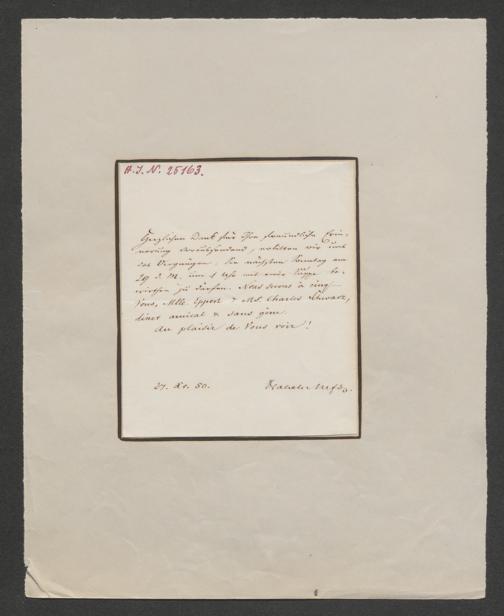 H.I.N. 25163.
Herzlichen Dank für Ihre freundliche Erin-
nerung, erbitten wir uns
das Vergnügen, Sie nächsten Sonntag am
29 d. M. um 1 Uhr mit einer Suppe be-
wirthen zu dürfen. Nous serons à cinq
Vous, Mlle Eppert & Mr. Charles Schwarz,
diner amical & sans gêne.
Au plaisir de Vous voir!
27. XI. 80.